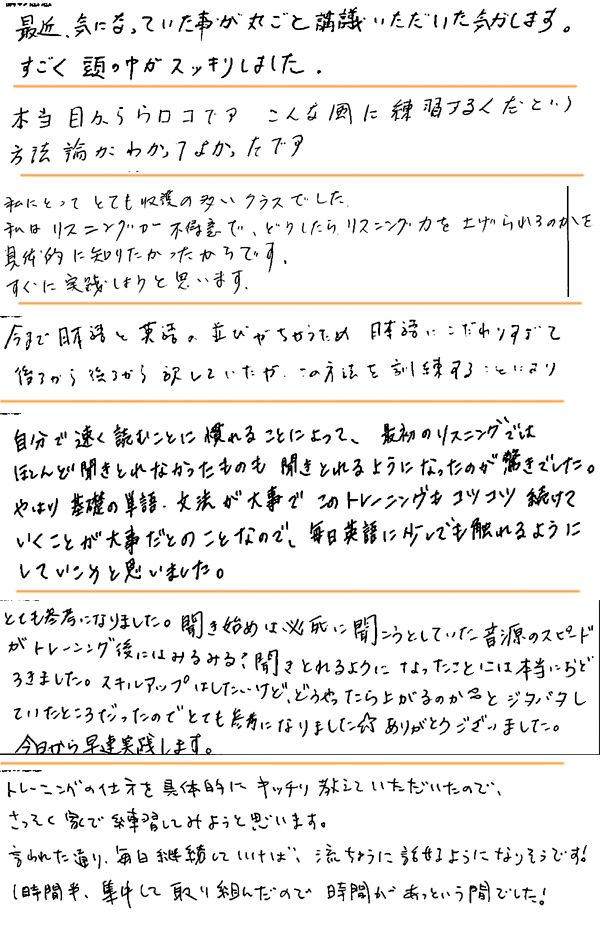 最近、気になっていた事が丸ごと講議いただいた気がします。
すごく頭の中がスッキリしました。
本当目からウロコです こんな風に練習するんだという
方法論がわかってよかったです
私にとってとても収穫の多いクラスでした。
私はリスニングが不得意で、どうしたらリスニング力を上げられるのかを
具体的に知りたかったからです。
すぐに実践しようと思います。
今まで日本語と英語の並びがちがうため 日本語にこだわりすぎて
後ろから後ろから訳していたが、この方法を訓練することにより
自分で速く読むことに慣れることによって、最初のリスニングでは
ほとんど聞きとれなかったものも 聞きとれるようになったのが驚きでした。
やはり基礎の単語・文法が大事で このトレーニングもコツコツ続けて
いくことが大事だとのことなので、毎日英語に少しでも触れるように
していこうと思いました。
とても参考になりました。聞き始めは必死に聞こうとしていた音源のスピード
がトレーニング後にはみるみる聞きとれるようになったことには本当におど
ろきました。スキルアップはしたいけど、どうやったら上がるのか…とジタバタし
ていたところだったのでとても参考になりました☆ ありがとうございました。
今日から早速実践します。
トレーニングの仕方を具体的にキッチリ教えていただいたので、
さっそく家で練習してみようと思います。
言われた通り、毎日継続していけば、流ちょうに話せるようになりそうです!
1時間半、集中して取り組んだので 時間があっという間でした!